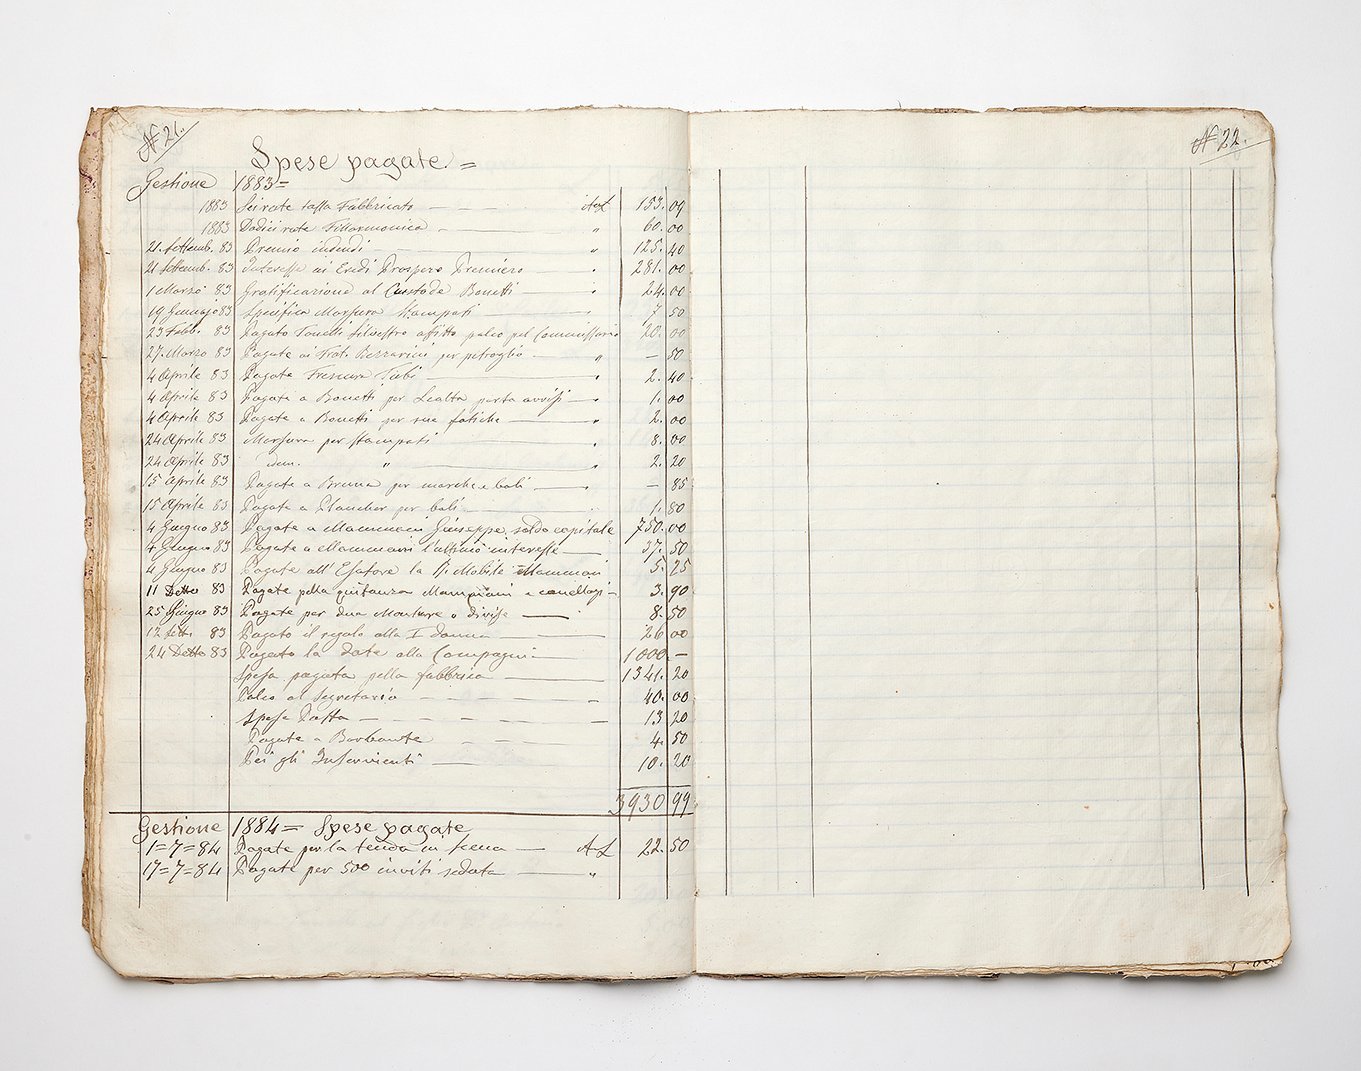 N° 21.
Spese pagate =
Gestione 1883 =
1883 Sei rate tassa Fabbricato — — — A.L. 153.09
1883 Dodici rate Filarmonica — — " 60.00
21. Settemb. 83 Premio — — " 125.40
21 Settemb. 83 Interesse ai Eredi Prospero Premiero — " 281.00
1 Marzo 83 Gratificazione al Custode Bonetti — " 24.00
19 Gennajo 83 Specifica Marsura Stampati — " 7.50
23 Febb. 83 Pagato Silvestro affitto palco pel Commissario 20.00
27. Marzo 83 Pagate ai Frat. per petroglio — " — 50
4 Aprile 83 Pagate Tubi — " 2.40
4 Aprile 83 Pagate a Bonetti per porta avvisi — " 1.00
4 Aprile 83 Pagate a Bonetti per sue fatiche — " 2.00
24 Aprile 83 Marsura per Stampati — " 8.00
24 Aprile 83 idem. " — " 2.20
15 Aprile 83 Pagate a Bruna per marche e boli — " — 85
15 Aprile 83 Pagate a Plancher per boli — . 1.80
4 Giugno 83 Pagate a Giuseppe saldo capitale 750.00
4 Giugno 83 Pagate a l'ultimo interesse — 37.50
4 Giugno 83 Pagate all'Esatore la R. Mobile 5.25
11 Detto 83 Pagate pella quitanza e — 3.90
25 Giugno 83 Pagate per due Monture o divise — 8.50
12 Detto 83 Pagato il regalo alla I donna — 26 00
24 Detto 83 Pagato la dote alla Compagni — 1000.—
Spesa pagata pella fabbrica — 1341.20
Palco al Segretario — — — 40.00
Spesa Posta — — — — 13 20
Pagate a Barbante — — — 4.50
Pei gli Inservienti — — 10.20
3930 99
Gestione 1884 = Spese pagate
1=7=84 Pagate per la tenda in scena — A.L. 22.50
17=7=84 Pagate per 500 inviti sedata — "
N° 22.